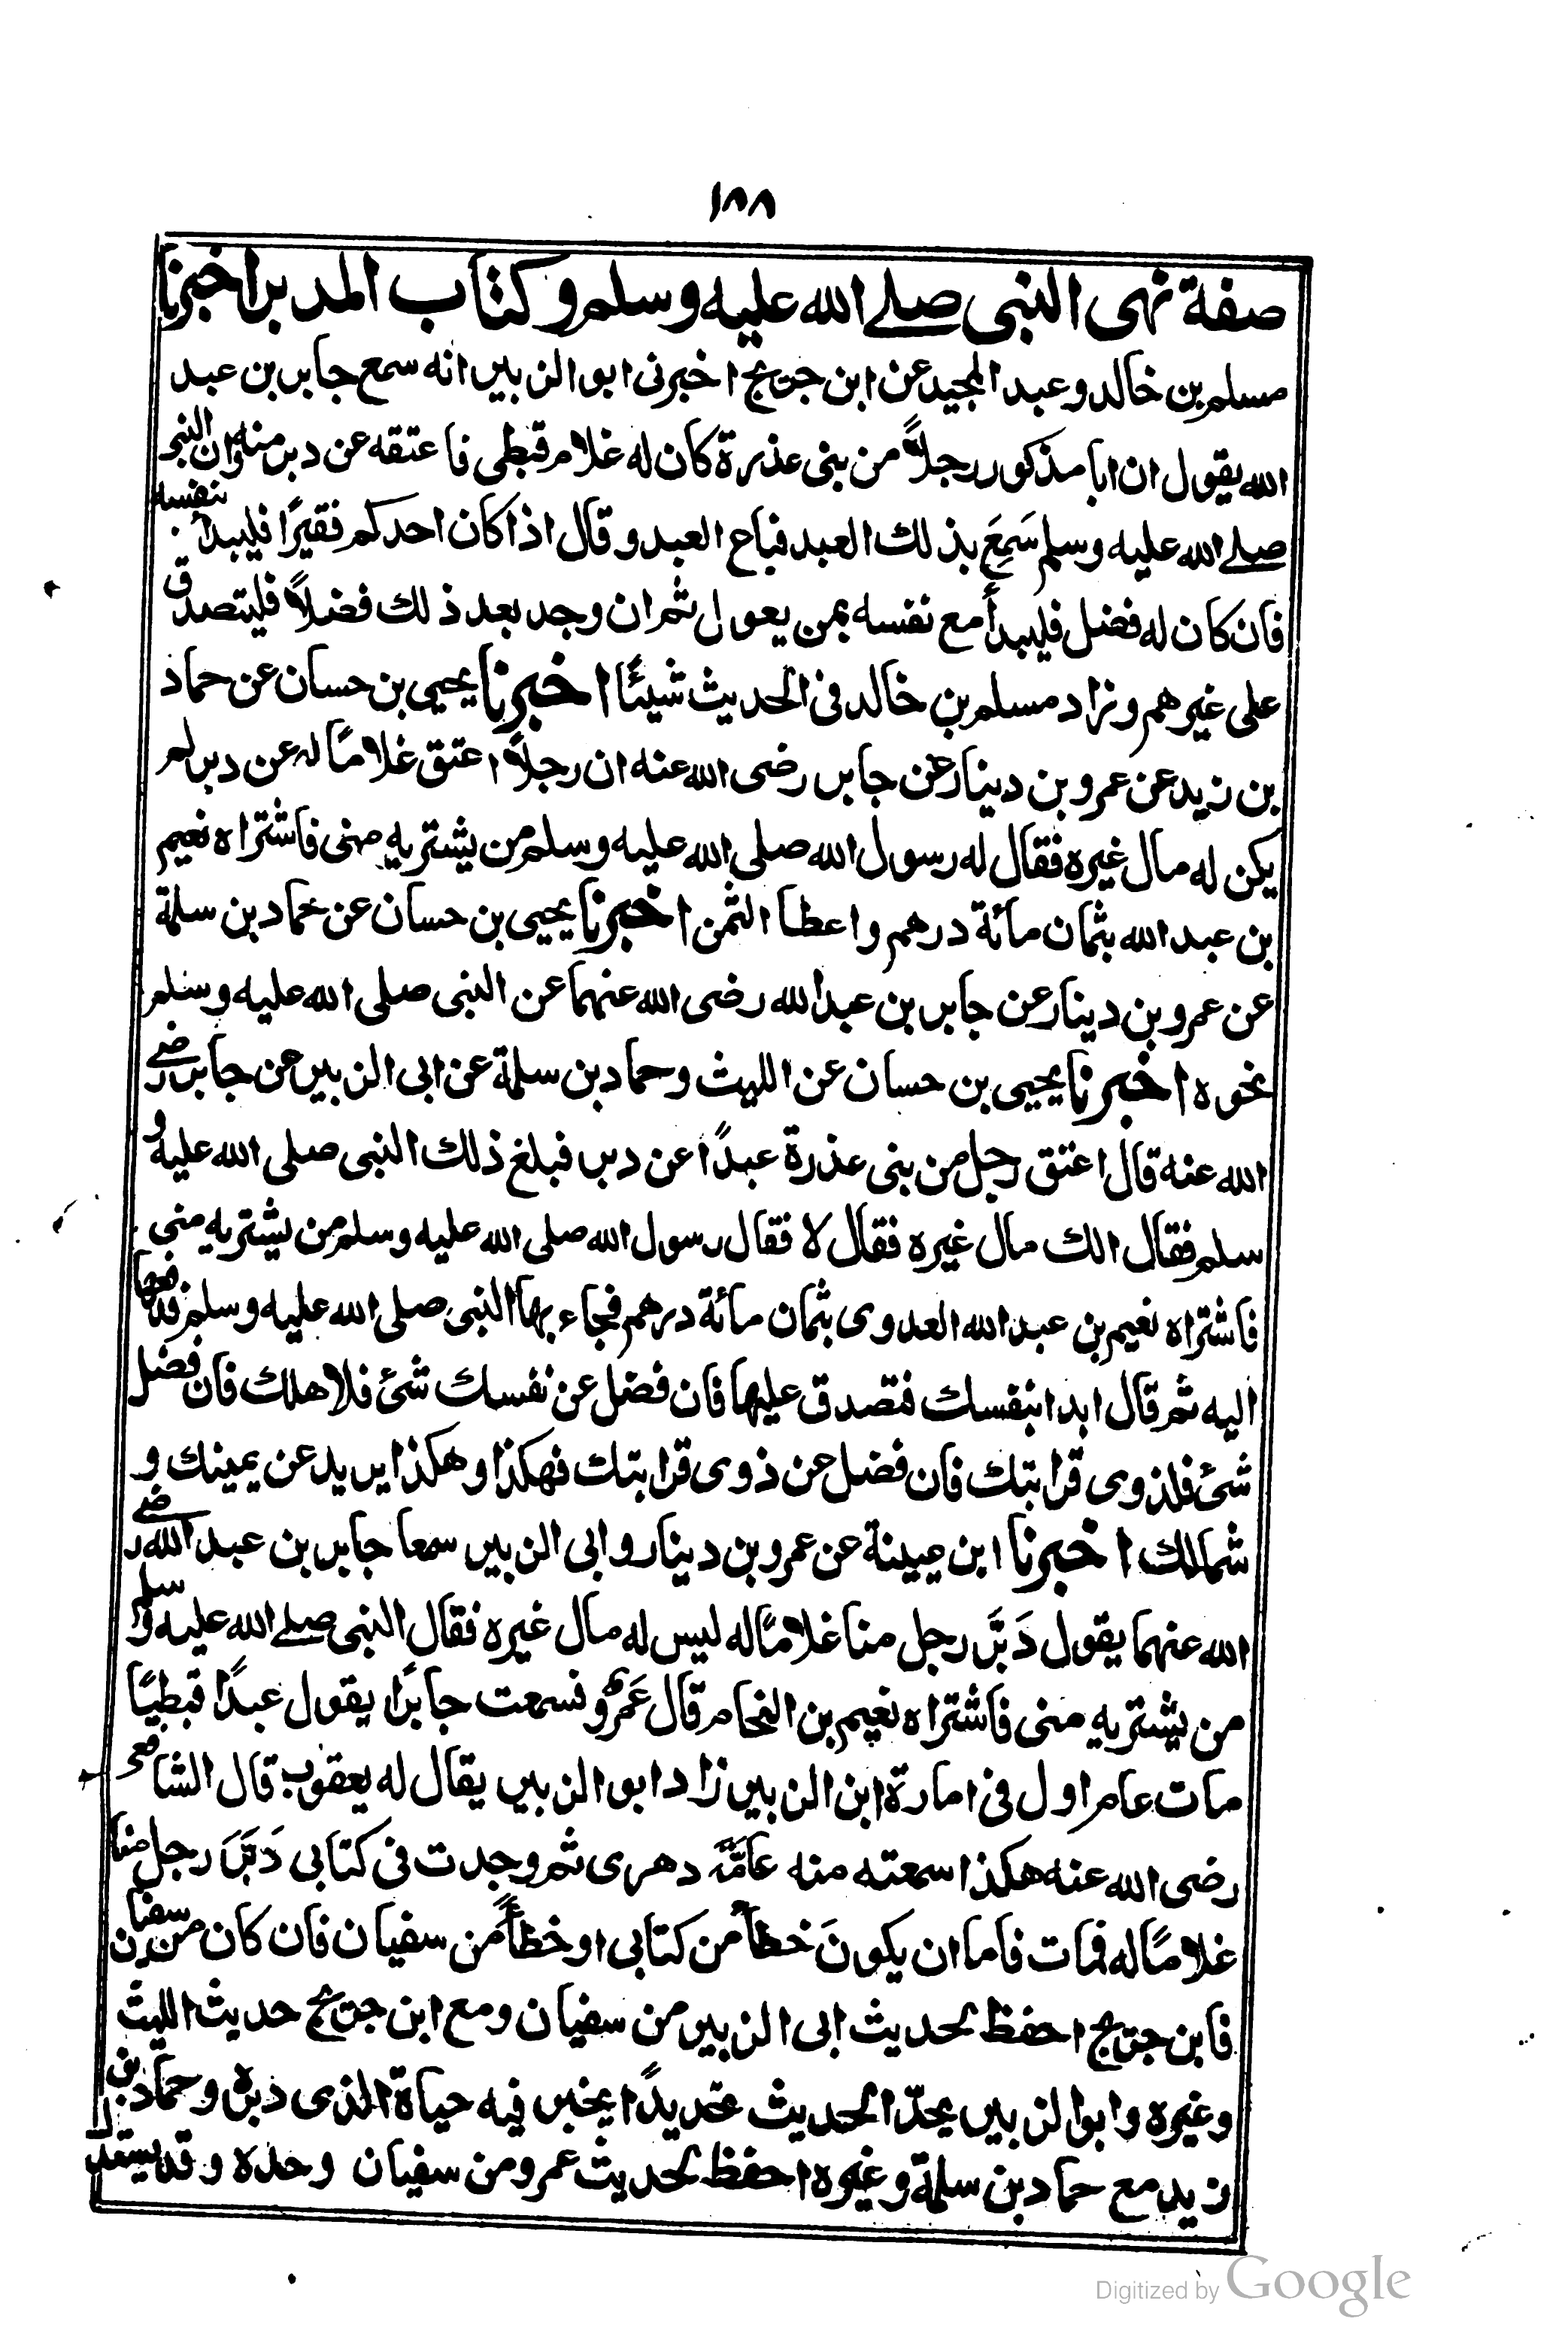 ١٨٨
صفة نهى النبى صلے الله عليه وسلم وكتاب المدبر اخبرنا
مسلم بن خالد وعبد المجيد عن ابن جريج اخبرنى ابو الزبير انه سمع جابر بن عبد
الله يقول ان ابا مذكور رجلاً من بنى عذرة كان له غلام قبطى فاعتقه عن دبر منه وان النبى
صلے الله عليه وسلم سَمِعَ بذلك العبد فباع العبد وقال اذا كان احدكم فقيرًا فليبدأ بنفسه
فان كان له فضل فليبدأ مع نفسه بمن يعول ثم ان وجد بعد ذلك فضلاً فليتصدق
على غيرهم وزاد مسلم بن خالد فى الحديث شيئًا اخبرنا يحيى بن حسان عن حماد
بن زيد عن عمرو بن دينار عن جابر رضى الله عنه ان رجلاً اعتق غلامًا له عن دبر لم
يكن له مال غيره فقال له رسول الله صلى الله عليه وسلم من يشتريه منى فاشتراه نعيم
بن عبد الله بثمان مائة درهم واعطا الثمن اخبرنا يحيى بن حسان عن حماد بن سلمة
عن عمرو بن دينار عن جابر بن عبد الله رضى الله عنهما عن النبى صلى الله عليه وسلم
نحوه اخبرنا يحيى بن حسان عن الليث وحماد بن سلمة عن ابى الزبير عن جابر رضے
الله عنه قال اعتق رجل من بنى عذرة عبدًا عن دبر فبلغ ذلك النبى صلى الله عليه و
سلم فقال الك مال غيره فقال لا فقال رسول الله صلى الله عليه وسلم من يشتريه منى
فاشتراه نعيم بن عبد الله العدوى بثمان مائة درهم فجاء بها النبى صلى الله عليه وسلم فدفعها
اليه ثم قال ابدا بنفسك فتصدق عليها فان فضل عن نفسك شئ فلاهلك فان فضل
شئ فلذوى قرابتك فان فضل عن ذوى قرابتك فهكذا وهكذا يريد عن يمينك و
شمالك اخبرنا ابن عيينة عن عمرو بن دينار وابى الزبير سمعا جابر بن عبد الله رضے
الله عنهما يقول دَبَّر رجل منا غلامًا له ليس له مال غيره فقال النبى صلے الله عليه وسلم
من يشتريه منى فاشتراه نعيم بن النحام قال عَمرٌو فسمعت جابرًا يقول عبدًا قبطيًا
مات عام اول فى امارة ابن الزبير زاد ابو الزبير يقال له يعقوب قال الشافعى
رضى الله عنه هكذا سمعته منه عامَّة دهرى ثم وجدت فى كتابى دَبَّرَ رجل منا
غلامًا له فمات فاما ان يكونَ خطأ من كتابى او خطأً من سفيان فان كان من سفيان
فابن جريج احفظ لحديث ابى الزبير من سفيان ومع ابن جريج حديث الليث
وغيره وابو الزبير يحدّ الحديث تحديدًا يخبر فيه حياة الذى دبره وحماد بن
زيد مع حماد بن سلمة وغيره احفظ لحديث عمرو من سفيان وحده وقد يستدل
Digitized by Google